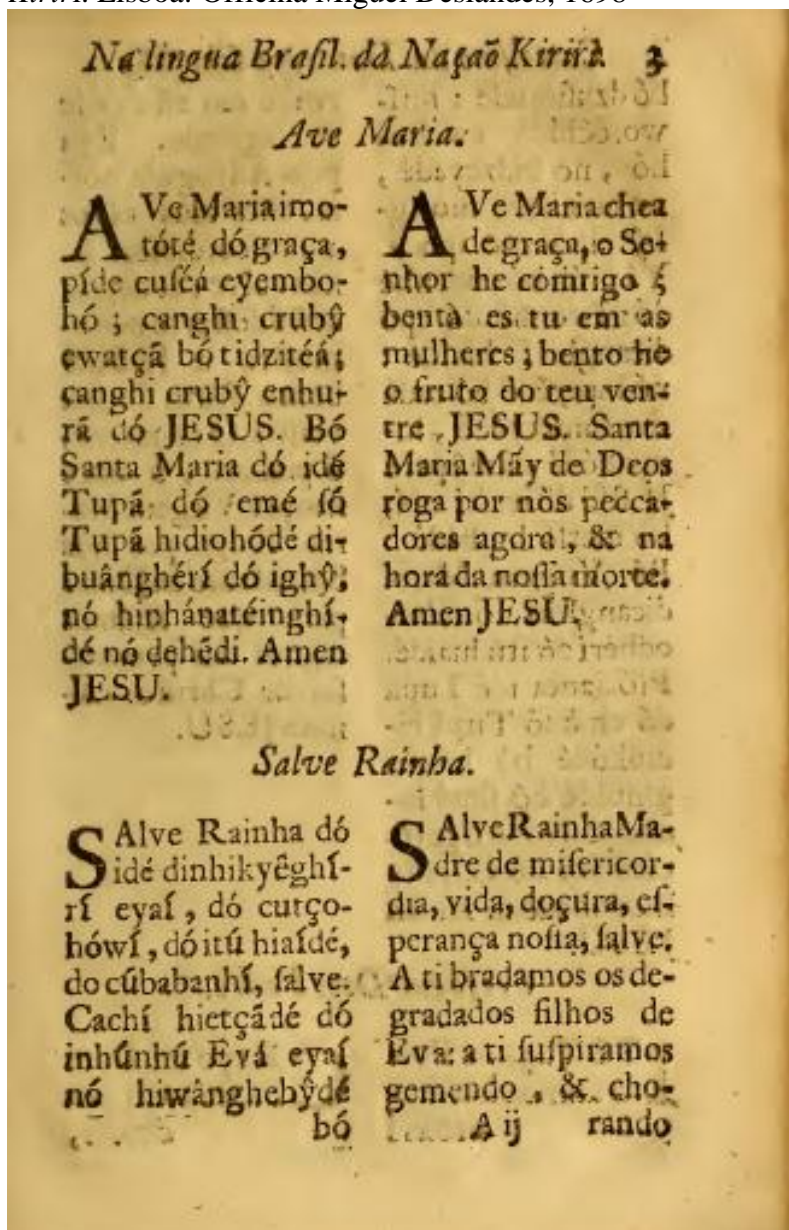 Kiriri. Lisboa: Officina Miguel Deslandes, 1698
Na lingua Brasil. da Naçaõ Kiriri. 3
Ave Maria.
AVe Maria imo-
tóté dó graça,
píde cuſéá eyembo-
hó ; canghi crubŷ
ewatçã bó tidzitéá;
canghi crubŷ enhu-
rã dó JESUS. Bó
Santa Maria dó idé
Tupã dó emé ſó
Tupã hidiohódé di-
buânghérí dó ighŷ,
nó hinhánatéinghí-
dé nó dehêdi. Amen
JESU.
AVe Maria chea
de graça, o Se-
nhor he comtigo ;
benta es tu em as
mulheres ; bento he
o fruto do teu ven-
tre JESUS. Santa
Maria Máy de Deos
roga por nòs pecca-
dores agora, & na
hora da noſſa morte.
Amen JESU.
Salve Rainha.
SAlve Rainha dó
idé dinhikyêghí-
rí eyaí, dó cutço-
hówí, dó itú hiaídé,
do cûbabanhí, ſalve.
Cachí hietçãdé dó
inhúnhú Evá eyaí
nó hiwânghebŷdé
bó
SAlve Rainha Ma-
dre de miſericor-
dia, vida, doçura, eſ-
perança noſſa, ſalve.
A ti bradamos os de-
gradados filhos de
Eva: a ti ſuſpiramos
gemendo, & cho-
A ij rando